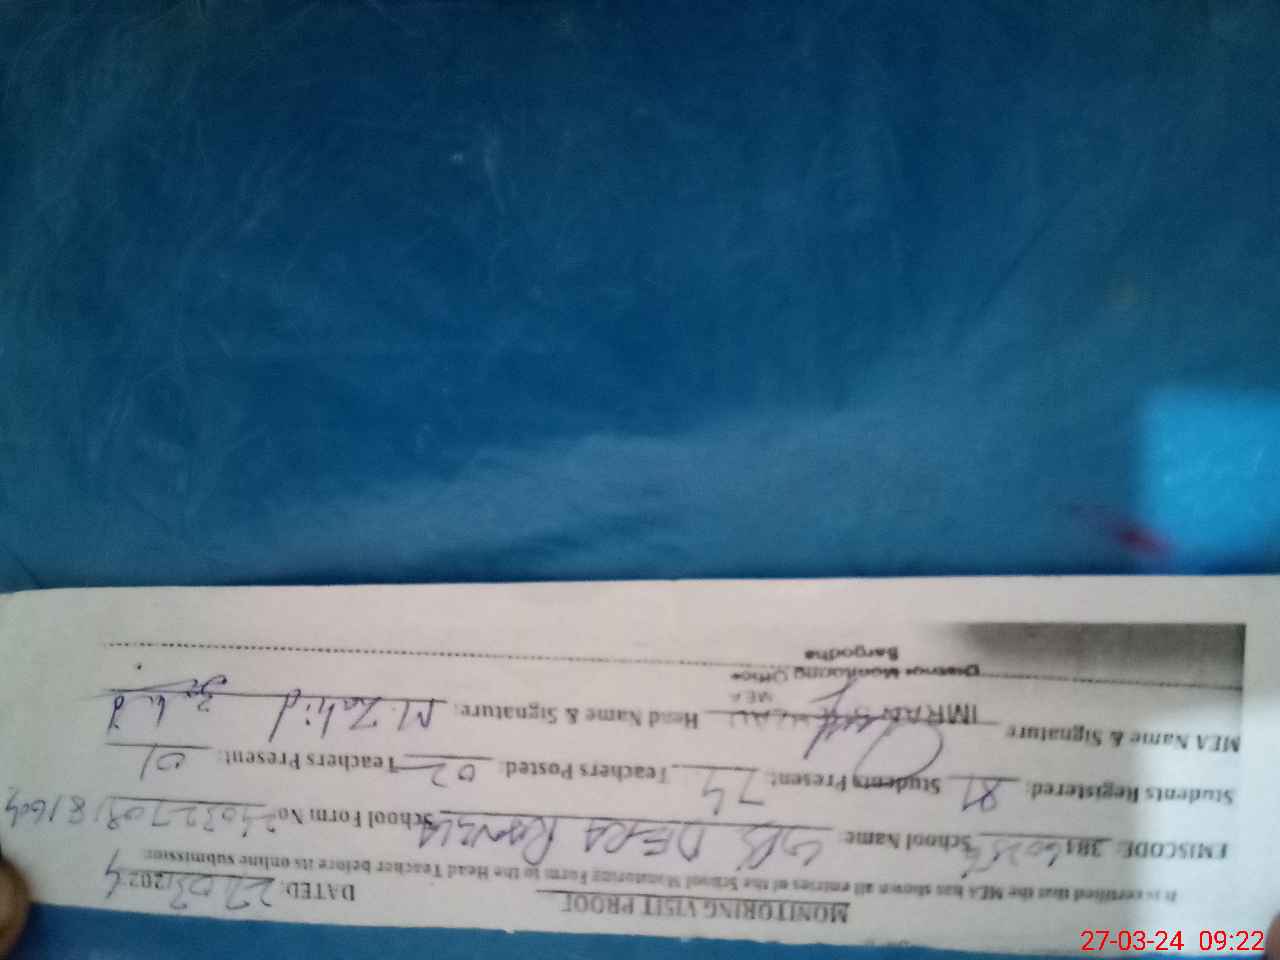 MONITORING VISIT PROOF
DATED: 27/03/2024
It is certified that the MEA has shown all entries of the School Monitoring Form to the Head Teacher before its online submission.
EMISCODE: 384 School Name: DERA School Form No
Students Registered: 81 Students Present: 74 Teachers Posted: 02 Teachers Present: 01
MEA Name & Signature IMRAN Head Name & Signature: M. Zahid Zahid
MEA
District Monitoring Office
Sargodha
27-03-24 09:22